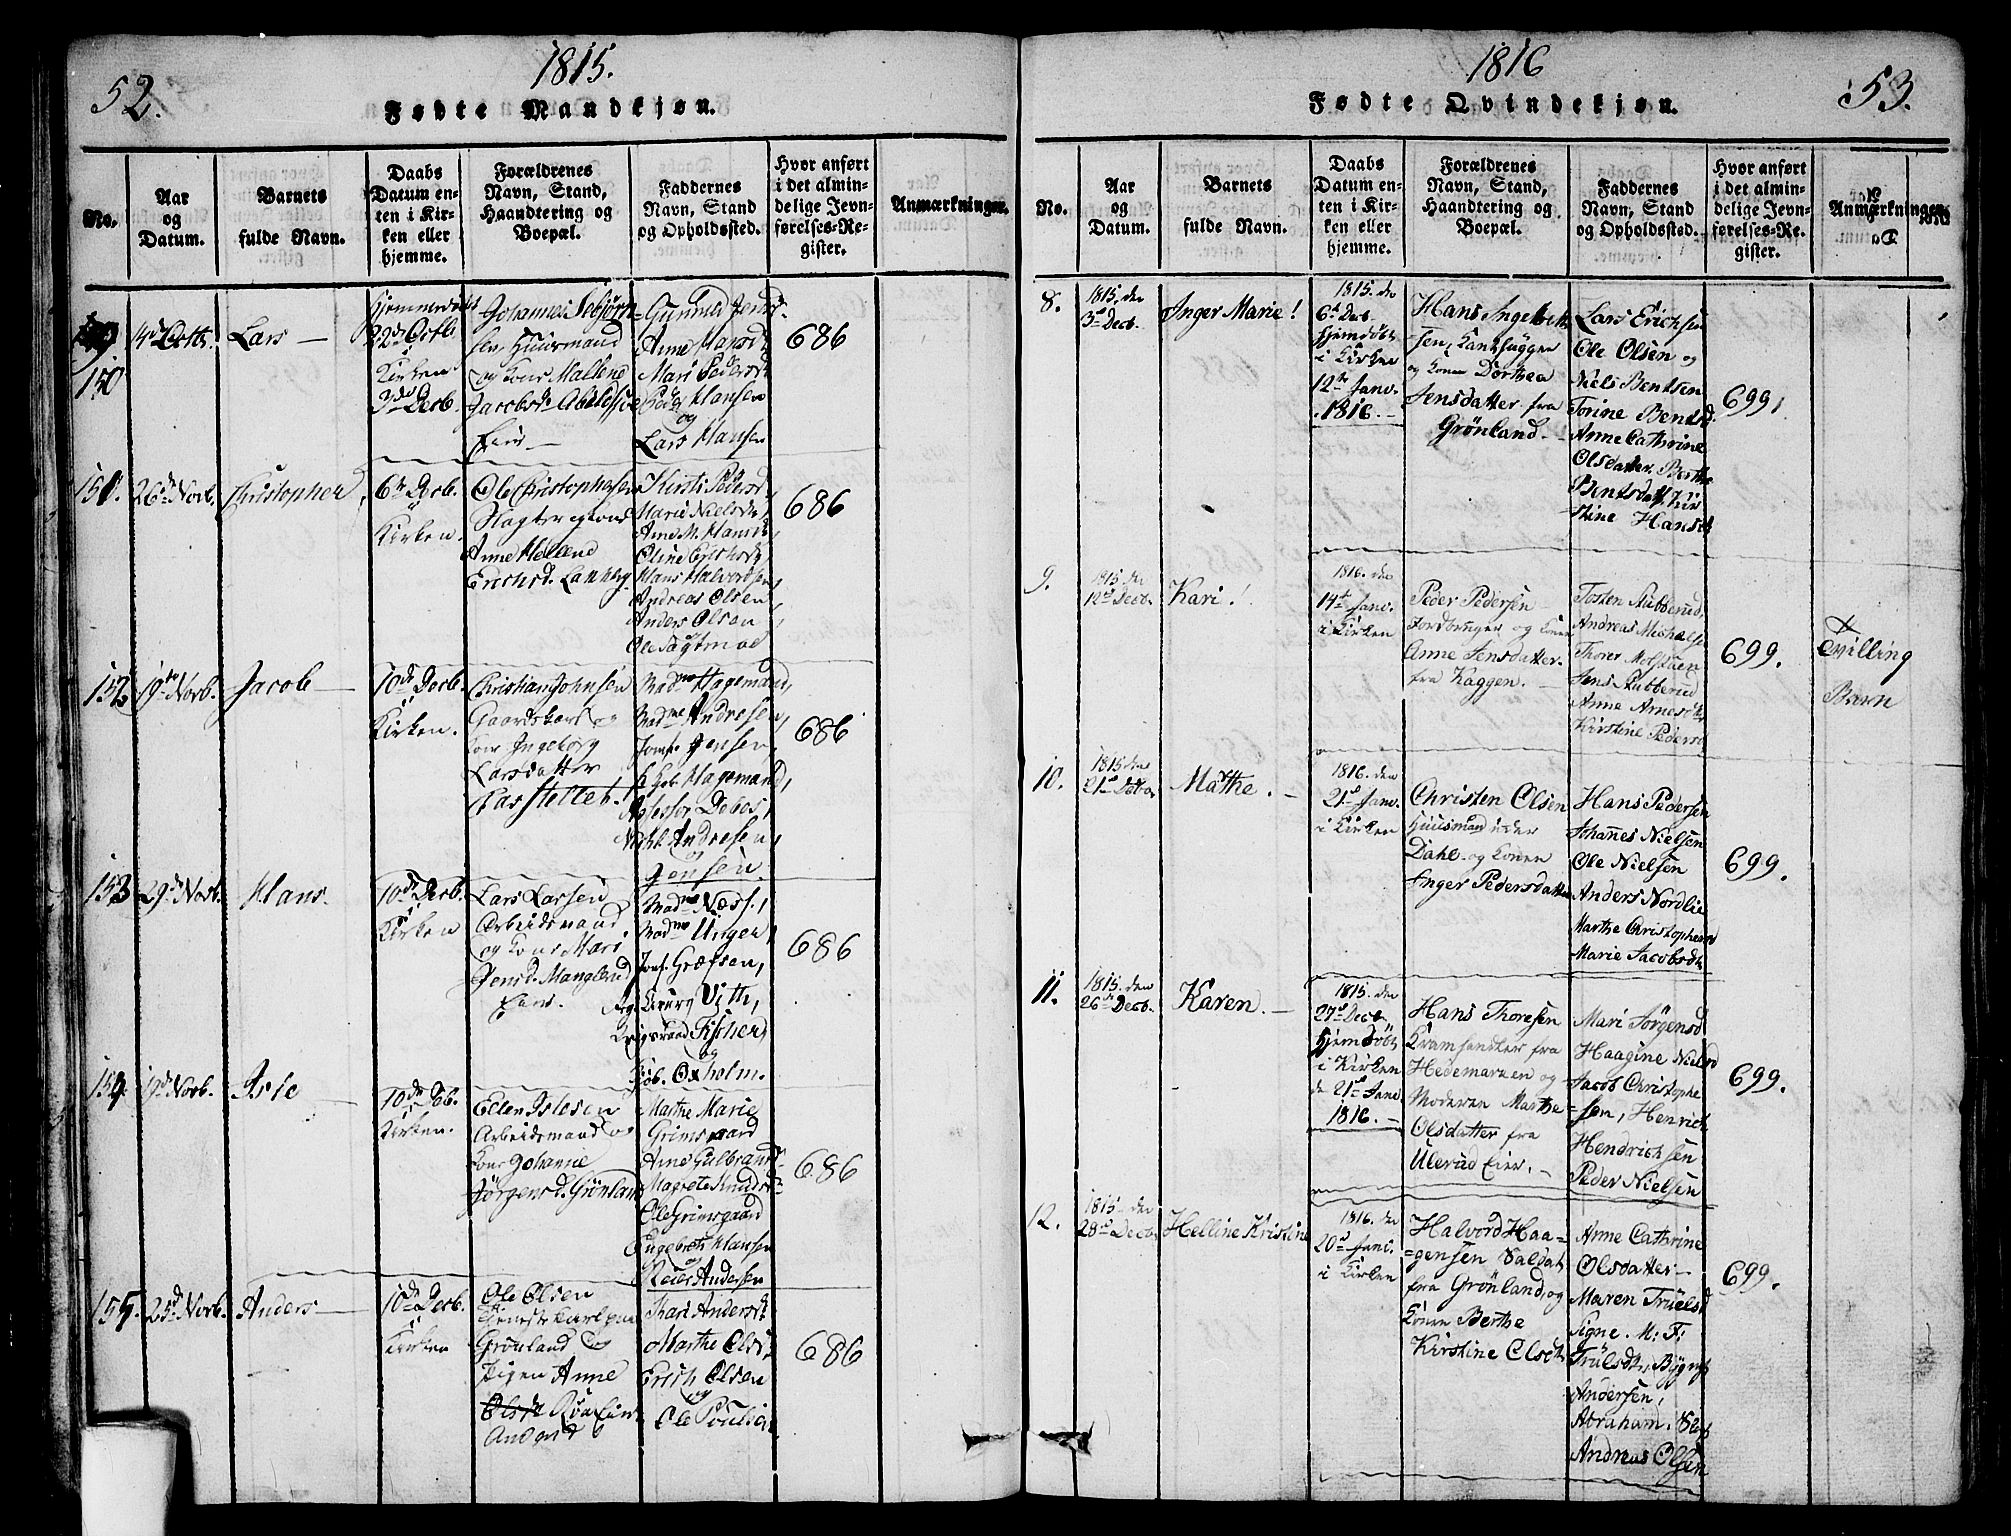 52.
1815.
Fødte Mandkjøn.
No.
Aar
og
Datum.
Barnets
fulde Navn.
Daabs
Datum en-
ten i Kir-
ken eller
hjemme.
Forældrenes
Navn, Stand,
Haandtering og
Boepæl.
Faddernes
Navn, Stand
og Opholdssted.
Hvor anført
i det almin-
delige Jevn-
førelses-Re-
gister.
Anmærkninger.
150
Lars
22de Octbr
i
Kirken
3die Decb.
Johannes
sen, Huusmand
og Kone Mallene
Gunnild
Anne
Mari Pedersd
Hansen
og
Lars Hansen
686
151.
26de Novb.
Christopher
6te Decb.
i
Kirken.
Ole Christophersen
Anne Mallene
Erichsd.
Kirsti Pedersd.
Marie Nielsd.
Anne M. Hansd.
Oline Erichsd.
Hans Halvordsen,
Andreas Olsen,
Anders Olsen
Ole
686
152
19de Novb.
Jacob
10de Decb.
i
Kirken.
Christian Johnsen
Gaardskarl og
Kone Ingeborg
Larsdatter
Madme Hagemand,
Madme Andresen,
Jomf. Jensen,
Hagemand,
Assessor Debos,
Andresen,
og
Jensen.
686
153
29de Novb.
Hans.
10de Decb.
i
Kirken
Lars Larsen
Arbeidsmand
og Kone Mari
Jensd. Manglerud
Eier.
Madme Næss,
Madme Unger,
Jomf. Græfsen,
Vith,
Krigsraad Fischer,
og
Oxholm.
686
154.
19de Novb.
Isle
10de Deb.
i
Kirken.
Ellen Islesen
Arbeidsmand og
Kone Johanne
Jørgensd. Grønland
Marthe Marie
Grimsgaard
Anne Gulbrandsd.
Magrete Knudsd.
Ole Grimsgaard
Engebret Hansen
og
Reier Andersen
686
155.
25de Novb.
Anders
10de Decb.
i
Kirken
Ole Olsen
Tjenestekarl paa
Grønland og
Pigen Anne
Kari Andersd.
Marthe Olsd.
Erich Olsen
og
Ole
686
1816
53.
Fødte Qvindekjøn.
No.
Aar
og
Datum.
Barnets
fulde Navn.
Daabs
Datum en-
ten i Kir-
ken eller
hjemme.
Forældrenes
Navn, Stand,
Haandtering og
Boepæl.
Faddernes
Navn, Stand
og Opholdssted.
Hvor anført
i det almin-
delige Jevn-
førelses-Re-
gister.
Anmærkninger.
8.
1815. den
3de Decb.
Inger Marie!
1815. den
6te Decb.
hjemdøbt
i Kirken
12te Janv.
1816.
Hans Ingebreth-
sen,
og Konen Dorthea
Jensdatter fra
Grönland.
Lars Erichsen
Ole Olsen og
Niels Bentsen
Torine Bentsd.
Anne Cathrine
Olsdatter. Berthe
Bentsdatt. Kir
stine Hansd.
699.
9.
1815 den
12te Decb.
Kari!
1816. den
14de Janv.
i Kirken
Peder Pedersen
Jordbruger og Konen
Anne Jensdatter.
fra Kaggen.
Tosten Stubberud,
Andreas Michelsen
Thorer
Jens Stubberud
Anne Arnesdt.
Kirstine Pedersd
699.
Tvilling
Børn
10.
1815 den
21de Decb.
Mathe.
1816. den
21de Janv.
i Kirken
Christen Olsen
Huusmand under
Dahl og Konen
Inger Pedersdatter
Hans Pedersen
Johannes Nielsen
Ole Nielsen
Anders Nordlie
Marthe Christophersd
Marie Jacobsdt.
699.
11.
1815. den
26de Decb.
Karen.
1815. den
27de Decb
hjemdøbt
i Kirken
d 21de Janv.
1816.
Hans Thoresen
Kramhandler fra
Hedemarken og
Moderen Marthe
Olsdatter fra
Ulerud Eier.
Mari Jörgensd
Haagine Nielsd
Jacob Christophe
=sen, Henrich
Hendrichsen
Peder Nielsen
699.
12.
1815. den
28de Decb.
Helline Kristine
1816. den
20de Janv.
i Kirken
Halvord Haa=
=gensen Saldat
fra Grönland, og
Konen Berthe
Kirstine Olsdt.
Anne Cathrine
Olsdatter
Maren Truelsd
Signe. M: F:
Trulsdt.
Andersen,
Abraham.
Andreas Olsen
699.